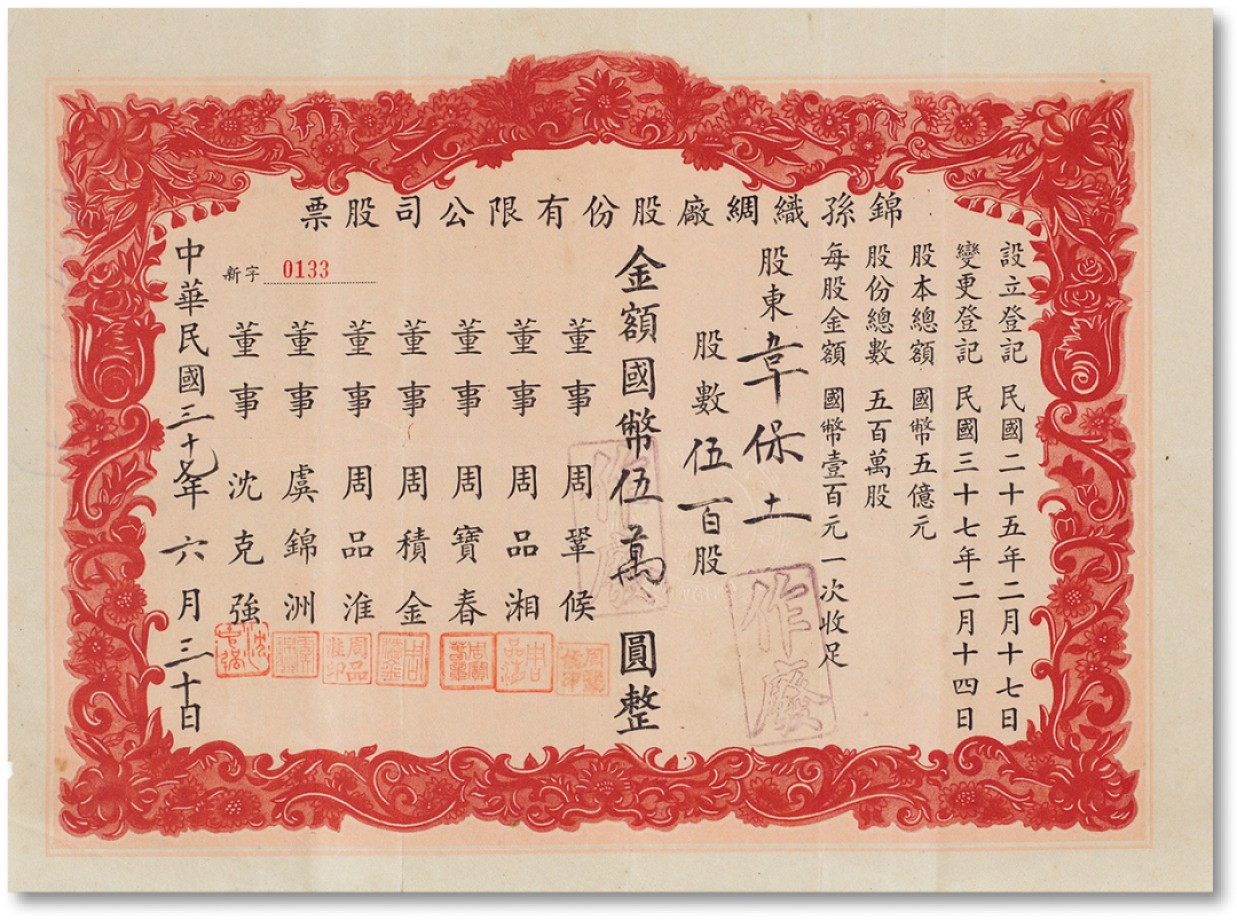 錦孫織綢廠股份有限公司股票
設立登記 民國二十五年二月十七日
變更登記 民國三十七年二月十四日
股本總額 國幣五億元
股份總數 五百萬股
每股金額 國幣壹百元一次收足
股東 韋保土
股數 伍百股
金額國幣伍萬圓整
董事 周鞏候
董事 周品湘
董事 周寶春
董事 周積金
董事 周品淮
董事 虞錦洲
董事 沈克強
新字 0133
中華民國三十七年六月三十日
作廢
作廢
周品淮印